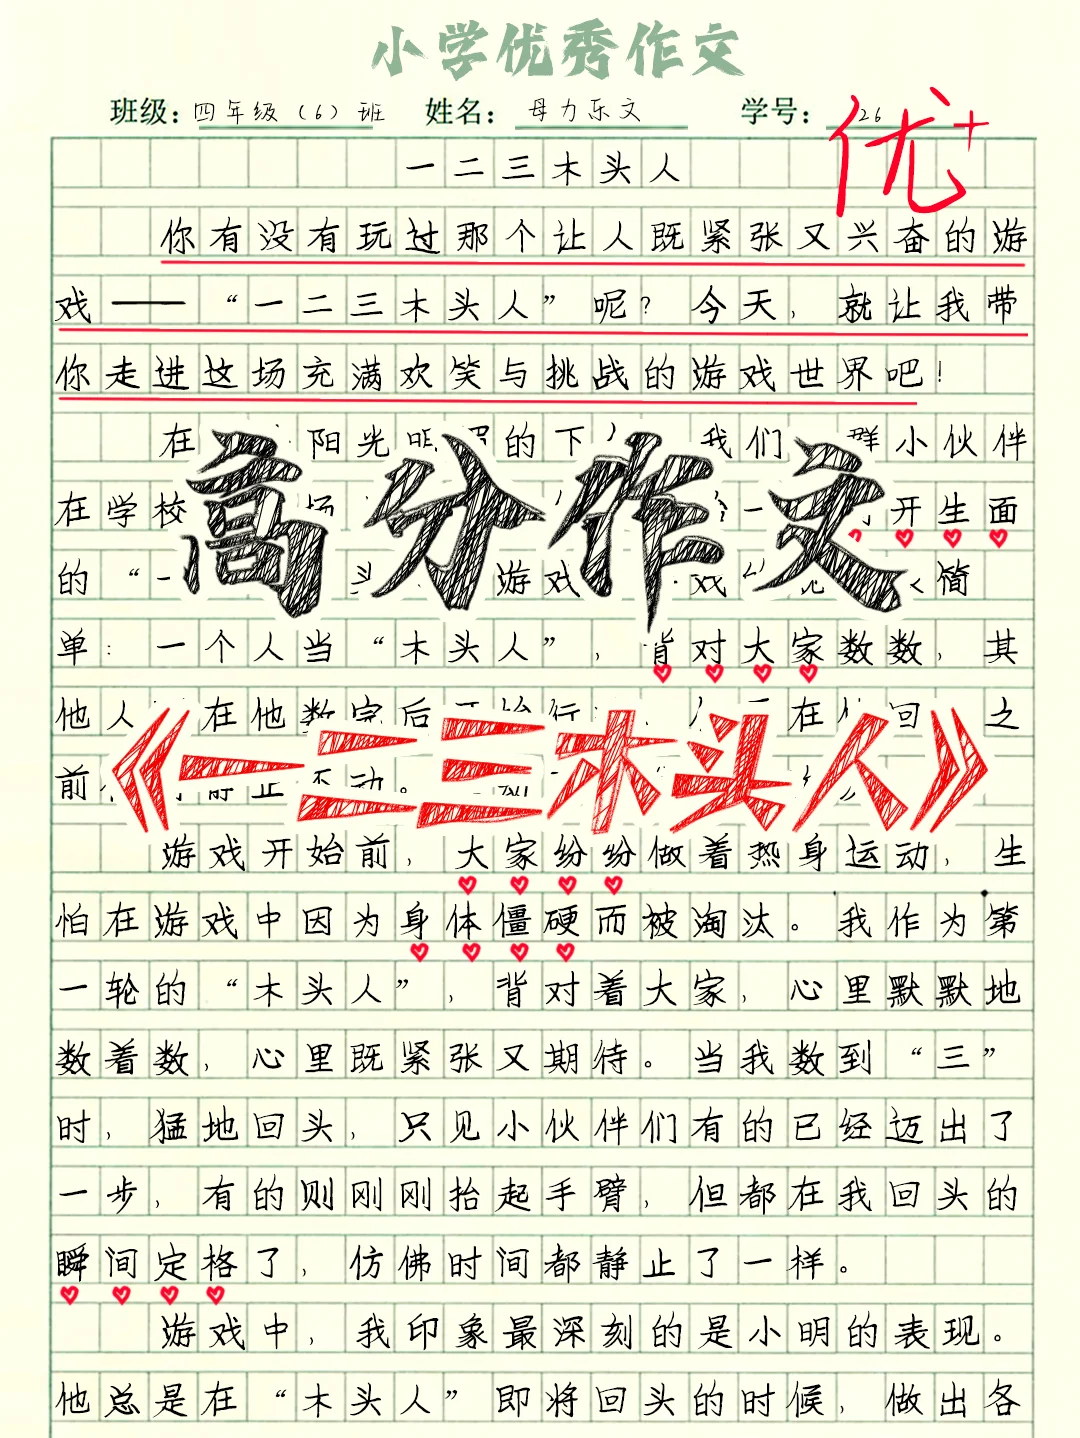 小学优秀作文
班级：四年级（6）班 姓名：母力乐文 学号：26
优+
一二三木头人
你有没有玩过那个让人既紧张又兴奋的游
戏——“一二三木头人”呢？今天，就让我带
你走进这场充满欢笑与挑战的游戏世界吧！
在 阳光明 的下 我们 群小伙伴
在学校 场 一 开生面
的“一 头 游戏 戏 简
高分作文
单：一个人当“木头人”，背对大家数数，其
他人 在他数完后 始行 在 回 之
前 静止不动。
《一二三木头人》
游戏开始前，大家纷纷做着热身运动，生
怕在游戏中因为身体僵硬而被淘汰。我作为第
一轮的“木头人”，背对着大家，心里默默地
数着数，心里既紧张又期待。当我数到“三”
时，猛地回头，只见小伙伴们有的已经迈出了
一步，有的则刚刚抬起手臂，但都在我回头的
瞬间定格了，仿佛时间都静止了一样。
游戏中，我印象最深刻的是小明的表现。
他总是在“木头人”即将回头的时候，做出各